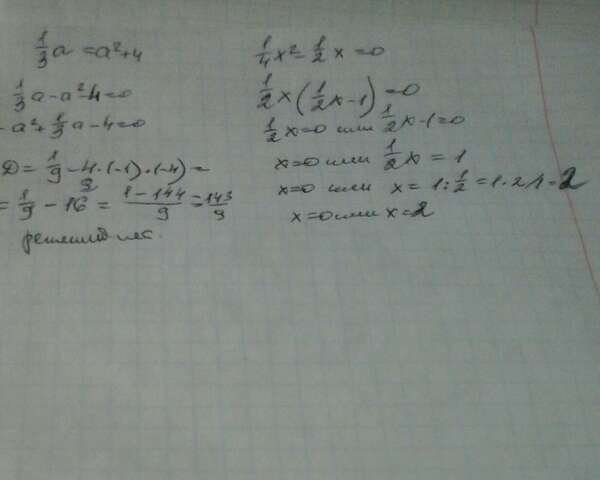 1/3 a = a²+4
1/3 a - a² - 4 = 0
- a² + 1/3 a - 4 = 0
D = 1/9 - 4 · (-1) · (-4) =
= 1/9 - 16 = (1 - 144)/9 = 143/9
1/4 x² - 1/2 x = 0
1/2 x (1/2 x - 1) = 0
1/2 x = 0 или 1/2 x - 1 = 0
x = 0 или 1/2 x = 1
x = 0 или x = 1 : 1/2 = 1 · 2/1 = 2
x = 0 или x = 2